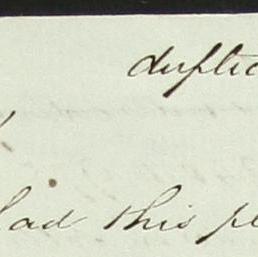 duplic
had this pl